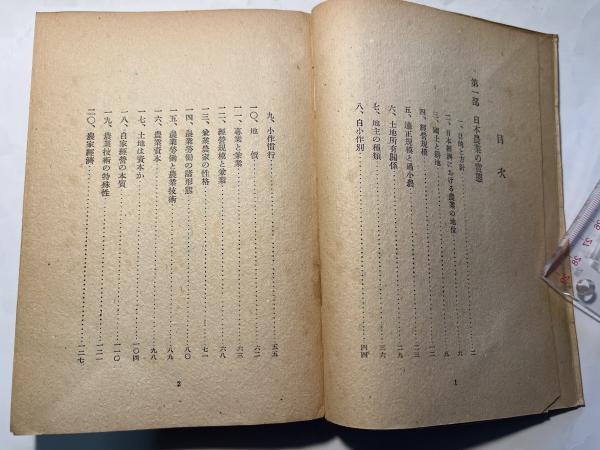 目次
第一部 日本農業の實態
一、目的と方針……二
二、日本經濟に於ける農業の地位……九
三、國土と耕地……八
四、經營規模……一二
五、適正規模と過小農……二三
六、土地所有關係……二九
七、地主の種類……三六
八、自小作別……四四
1
九、小作慣行……五五
一〇、地價……六二
一一、專業と兼業……六三
一二、經營規模と兼業……六八
一三、兼業農家の性格……七一
一四、農業勞働の諸形態……八〇
一五、農業勞働と農業技術……八九
一六、農業資本……九八
一七、土地は資本か……一〇四
一八、自家經營の本質……一一〇
一九、農業技術の特殊性……一二一
二〇、農家經濟……一二七
2